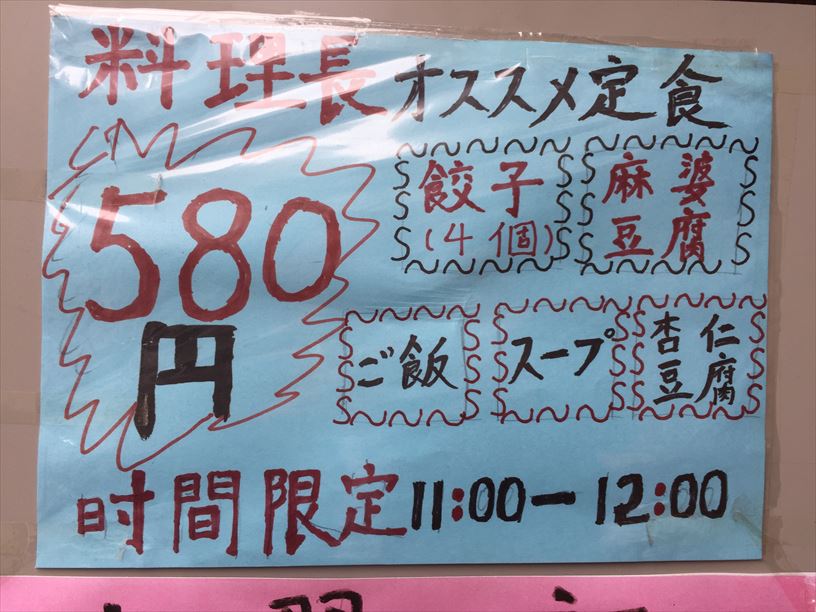 料理長オススメ定食
580円
餃子
(4個)
麻婆
豆腐
ご飯
スープ
杏仁
豆腐
时間限定11:00ー12:00